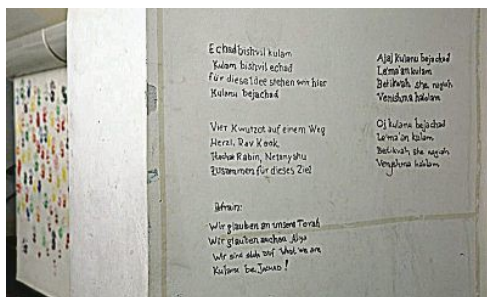 Echad bishvil kulam
Kulam bishvil echad
für diese Idee stehen wir hier
Kulanu bejachad
Vier Kwutzot auf einem Weg
Herzl, Rav Kook,
Rabin, Netanyahu
Zusammen für dieses Ziel
Refrain:
Wir glauben an unsere Torah
Wir glauben an
Wir sind stolz auf what we are
Kulanu be JACHAD!
Ajaj kulanu bejachad
Lema'an kulam
Betikwah she nagiah
Venishma halolam
Oj kulanu bejachad
Le'ma'an kulam
Betikvah she nagiah
Venishma halolam